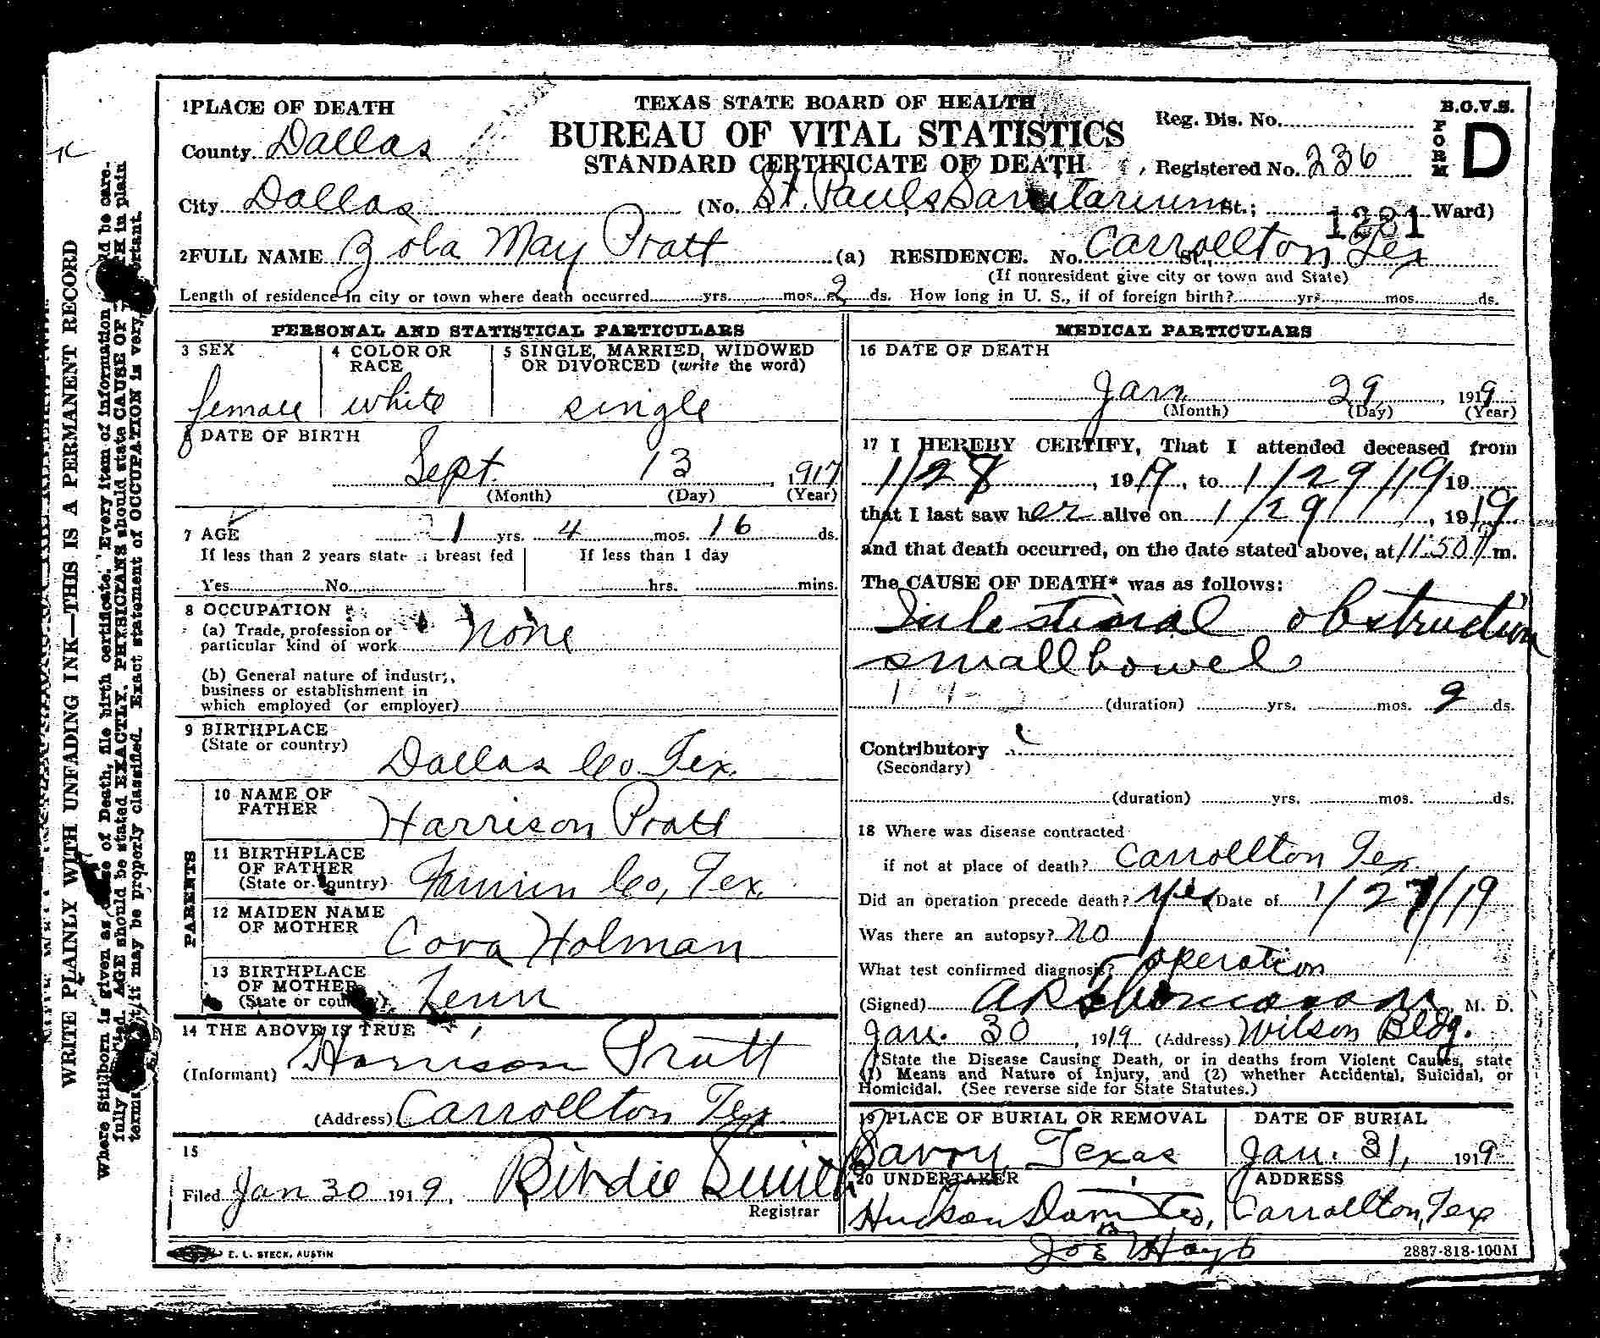 1 PLACE OF DEATH
TEXAS STATE BOARD OF HEALTH
BUREAU OF VITAL STATISTICS
STANDARD CERTIFICATE OF DEATH
Reg. Dis. No.
B.O.V.S.
FORM D
County Dallas
Registered No. 236
City Dallas (No. St. Paul's Sanitarium St.; Ward)
1281
2 FULL NAME Zola May Pratt (a) RESIDENCE. No. Carrollton Tex St.,
(If nonresident give city or town and State)
Length of residence in city or town where death occurred yrs. mos. 2 ds. How long in U. S., if of foreign birth? yrs. mos. ds.
PERSONAL AND STATISTICAL PARTICULARS
3 SEX female
4 COLOR OR RACE white
5 SINGLE, MARRIED, WIDOWED OR DIVORCED (write the word) single
6 DATE OF BIRTH
Sept. 13, 1917
(Month) (Day) (Year)
7 AGE 1 yrs. 4 mos. 16 ds.
If less than 2 years state if breast fed
Yes No
If less than 1 day
hrs. mins.
8 OCCUPATION
(a) Trade, profession or particular kind of work none
(b) General nature of industry, business or establishment in which employed (or employer)
9 BIRTHPLACE
(State or country) Dallas Co. Tex.
PARENTS
10 NAME OF FATHER Harrison Pratt
11 BIRTHPLACE OF FATHER
(State or country) Co, Tex.
12 MAIDEN NAME OF MOTHER Cora Holman
13 BIRTHPLACE OF MOTHER
(State or country) Tenn
14 THE ABOVE IS TRUE
(Informant) Harrison Pratt
(Address) Carrollton Tex
15
Filed Jan 30 1919. Birdie Smith
Registrar
MEDICAL PARTICULARS
16 DATE OF DEATH
Jan 29, 1919
(Month) (Day) (Year)
17 I HEREBY CERTIFY, That I attended deceased from
1/28, 1919, to 1/29/19 19
that I last saw her alive on 1/29, 1919
and that death occurred, on the date stated above, at 11:50 m.
The CAUSE OF DEATH* was as follows:
Intestinal obstruction
small bowel
(duration) yrs. mos. 2 ds.
Contributory
(Secondary)
(duration) yrs. mos. ds.
18 Where was disease contracted
if not at place of death? Carrollton Tex
Did an operation precede death? Yes Date of 1/27/19
Was there an autopsy? No
What test confirmed diagnosis? operation
(Signed) A R Thomasson M. D.
Jan. 30, 1919 (Address) Wilson Bldg.
*State the Disease Causing Death, or in deaths from Violent Causes, state
(1) Means and Nature of Injury, and (2) whether Accidental, Suicidal, or
Homicidal. (See reverse side for State Statutes.)
19 PLACE OF BURIAL OR REMOVAL
Savoy, Texas
DATE OF BURIAL
Jan. 31, 1919
20 UNDERTAKER
ADDRESS
Carrollton, Tex
E. L. STECK, AUSTIN
2887-818-100M
WRITE PLAINLY WITH UNFADING INK—THIS IS A PERMANENT RECORD